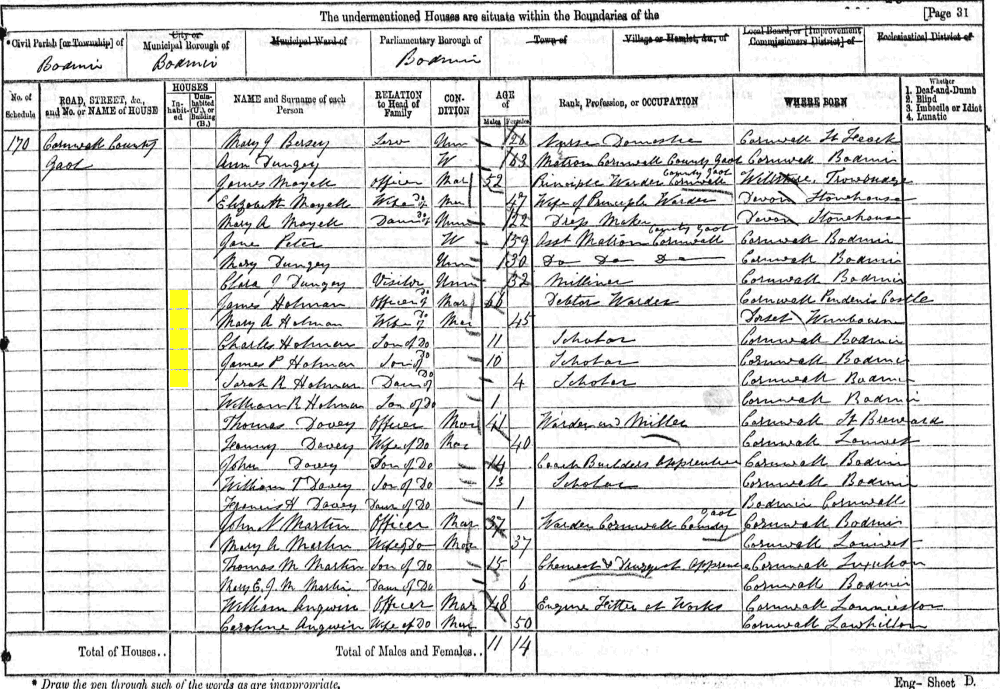 The undermentioned Houses are situate within the Boundaries of the
[Page 31
* Civil Parish [or Township] of
City or Municipal Borough of
Municipal Ward of
Parliamentary Borough of
Town of
Village or Hamlet, &c., of
Local Board, or [Improvement Commissioners District] of
Ecclesiastical District of
Bodmin
Bodmin
Bodmin
No. of Schedule
ROAD, STREET, &c., and No. or NAME of HOUSE
HOUSES
In-habit-ed
Unin-habited (U.), or Building (B.)
NAME and Surname of each Person
RELATION to Head of Family
CON-DITION
AGE of
Males
Females
Rank, Profession, or OCCUPATION
WHERE BORN
Whether
1. Deaf-and-Dumb
2. Blind
3. Imbecile or Idiot
4. Lunatic
170 Cornwall County Mary J Bersey Serv Unm 26 Nurse Domestic Cornwall St
Gaol Ann Dungey W 63 Matron Cornwall County Gaol Cornwall Bodmin
James Mayell Officer Mar 52 Principle Warder Cornwall County Gaol Wiltshire, Trowbridge
Elizabeth Mayell Wife of Do Mar 47 Wife of Principle Warder Devon Stonehouse
Mary A Mayell Daur of Do Unm 22 Dress Maker Devon Stonehouse
Jane Peter W 59 Asst Matron Cornwall County Gaol Cornwall Bodmin
Mary Dungey Unm 30 Do Do Do Cornwall Bodmin
Clara J Dungey Visitor Unm 32 Milliner Cornwall Bodmin
James Holman Officer of Do Mar Debtor Warder Cornwall Pendenis Castle
Mary A Holman Wife of Do Mar 45 Dorset Wimbourne
Charles Holman Son of Do 11 Scholar Cornwall Bodmin
James P Holman Son of Do 10 Scholar Cornwall Bodmin
Sarah R Holman Daur of Do 4 Scholar Cornwall Bodmin
William R Holman Son of Do 1 Cornwall Bodmin
Thomas Davey Officer Mar 41 Warder and Miller Cornwall St Breward
Fanny Davey Wife of Do Mar 40 Cornwall Lanivet
John Davey Son of Do 14 Coach Builders Apprentice Cornwall Bodmin
William T Davey Son of Do 13 Scholar Cornwall Bodmin
Francis H Davey Daur of Do 1 Bodmin Cornwall
John N Martin Officer Mar 37 Warder Cornwall County Gaol Cornwall Bodmin
Mary A Martin Wife of Do Mar 37 Cornwall Lanivet
Thomas M Martin Son of Do 15 Chemest & Druggest Apprentice Cornwall Luxulion
Mary E. J. M Martin Daur of Do 6 Cornwall Bodmin
William Angwin Officer Mar 48 Engine Fitter at Works Cornwall
Caroline Angwin Wife of Do Mar 50 Cornwall Lawhitton
Total of Houses..
Total of Males and Females..
11 14
* Draw the pen through such of the words as are inappropriate.
Eng- Sheet D.